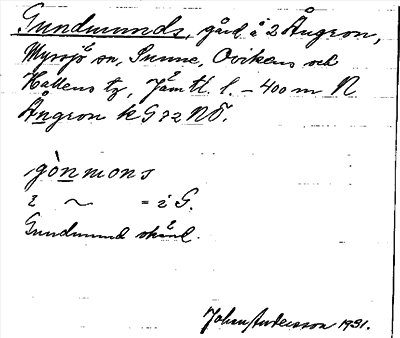 Gundmunds, gård å 2 Ångron,
Myrsjö sn, Sunne, Ovikens och
Hallens tg, Jämtl. l. – 400 m N
Ångron k G 72 NÖ.
gònmons
i ~ = i G.
Gundmund skånl.
Johan Andersson 1931.